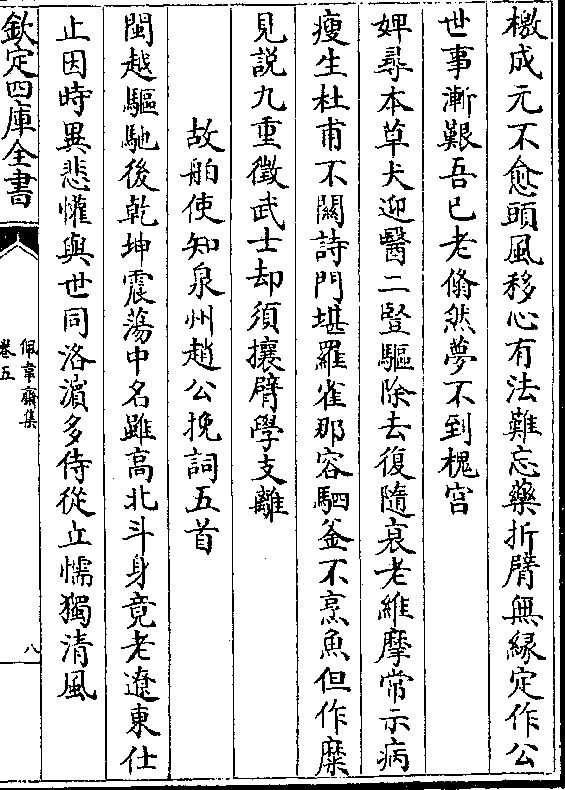 檄成元不愈頭風移心有法難忘藥折臂無緣定作公
世事漸艱吾已老翛然夢不到槐宫
婢尋本草犬迎醫二豎驅除去復隨衰老維摩常示病
瘦生杜甫不闗詩門堪羅雀那容駟釜不烹魚但作糜
見説九重徵武士却須攘臂學支離
故舶使知泉州趙公挽詞五首
閩越驅馳後乾坤震蕩中名雖高北斗身竟老遼東仕
止因時異悲懽與世同洛濵多侍從立懦獨清風
欽定四庫全書
佩韋齋集
卷五
八